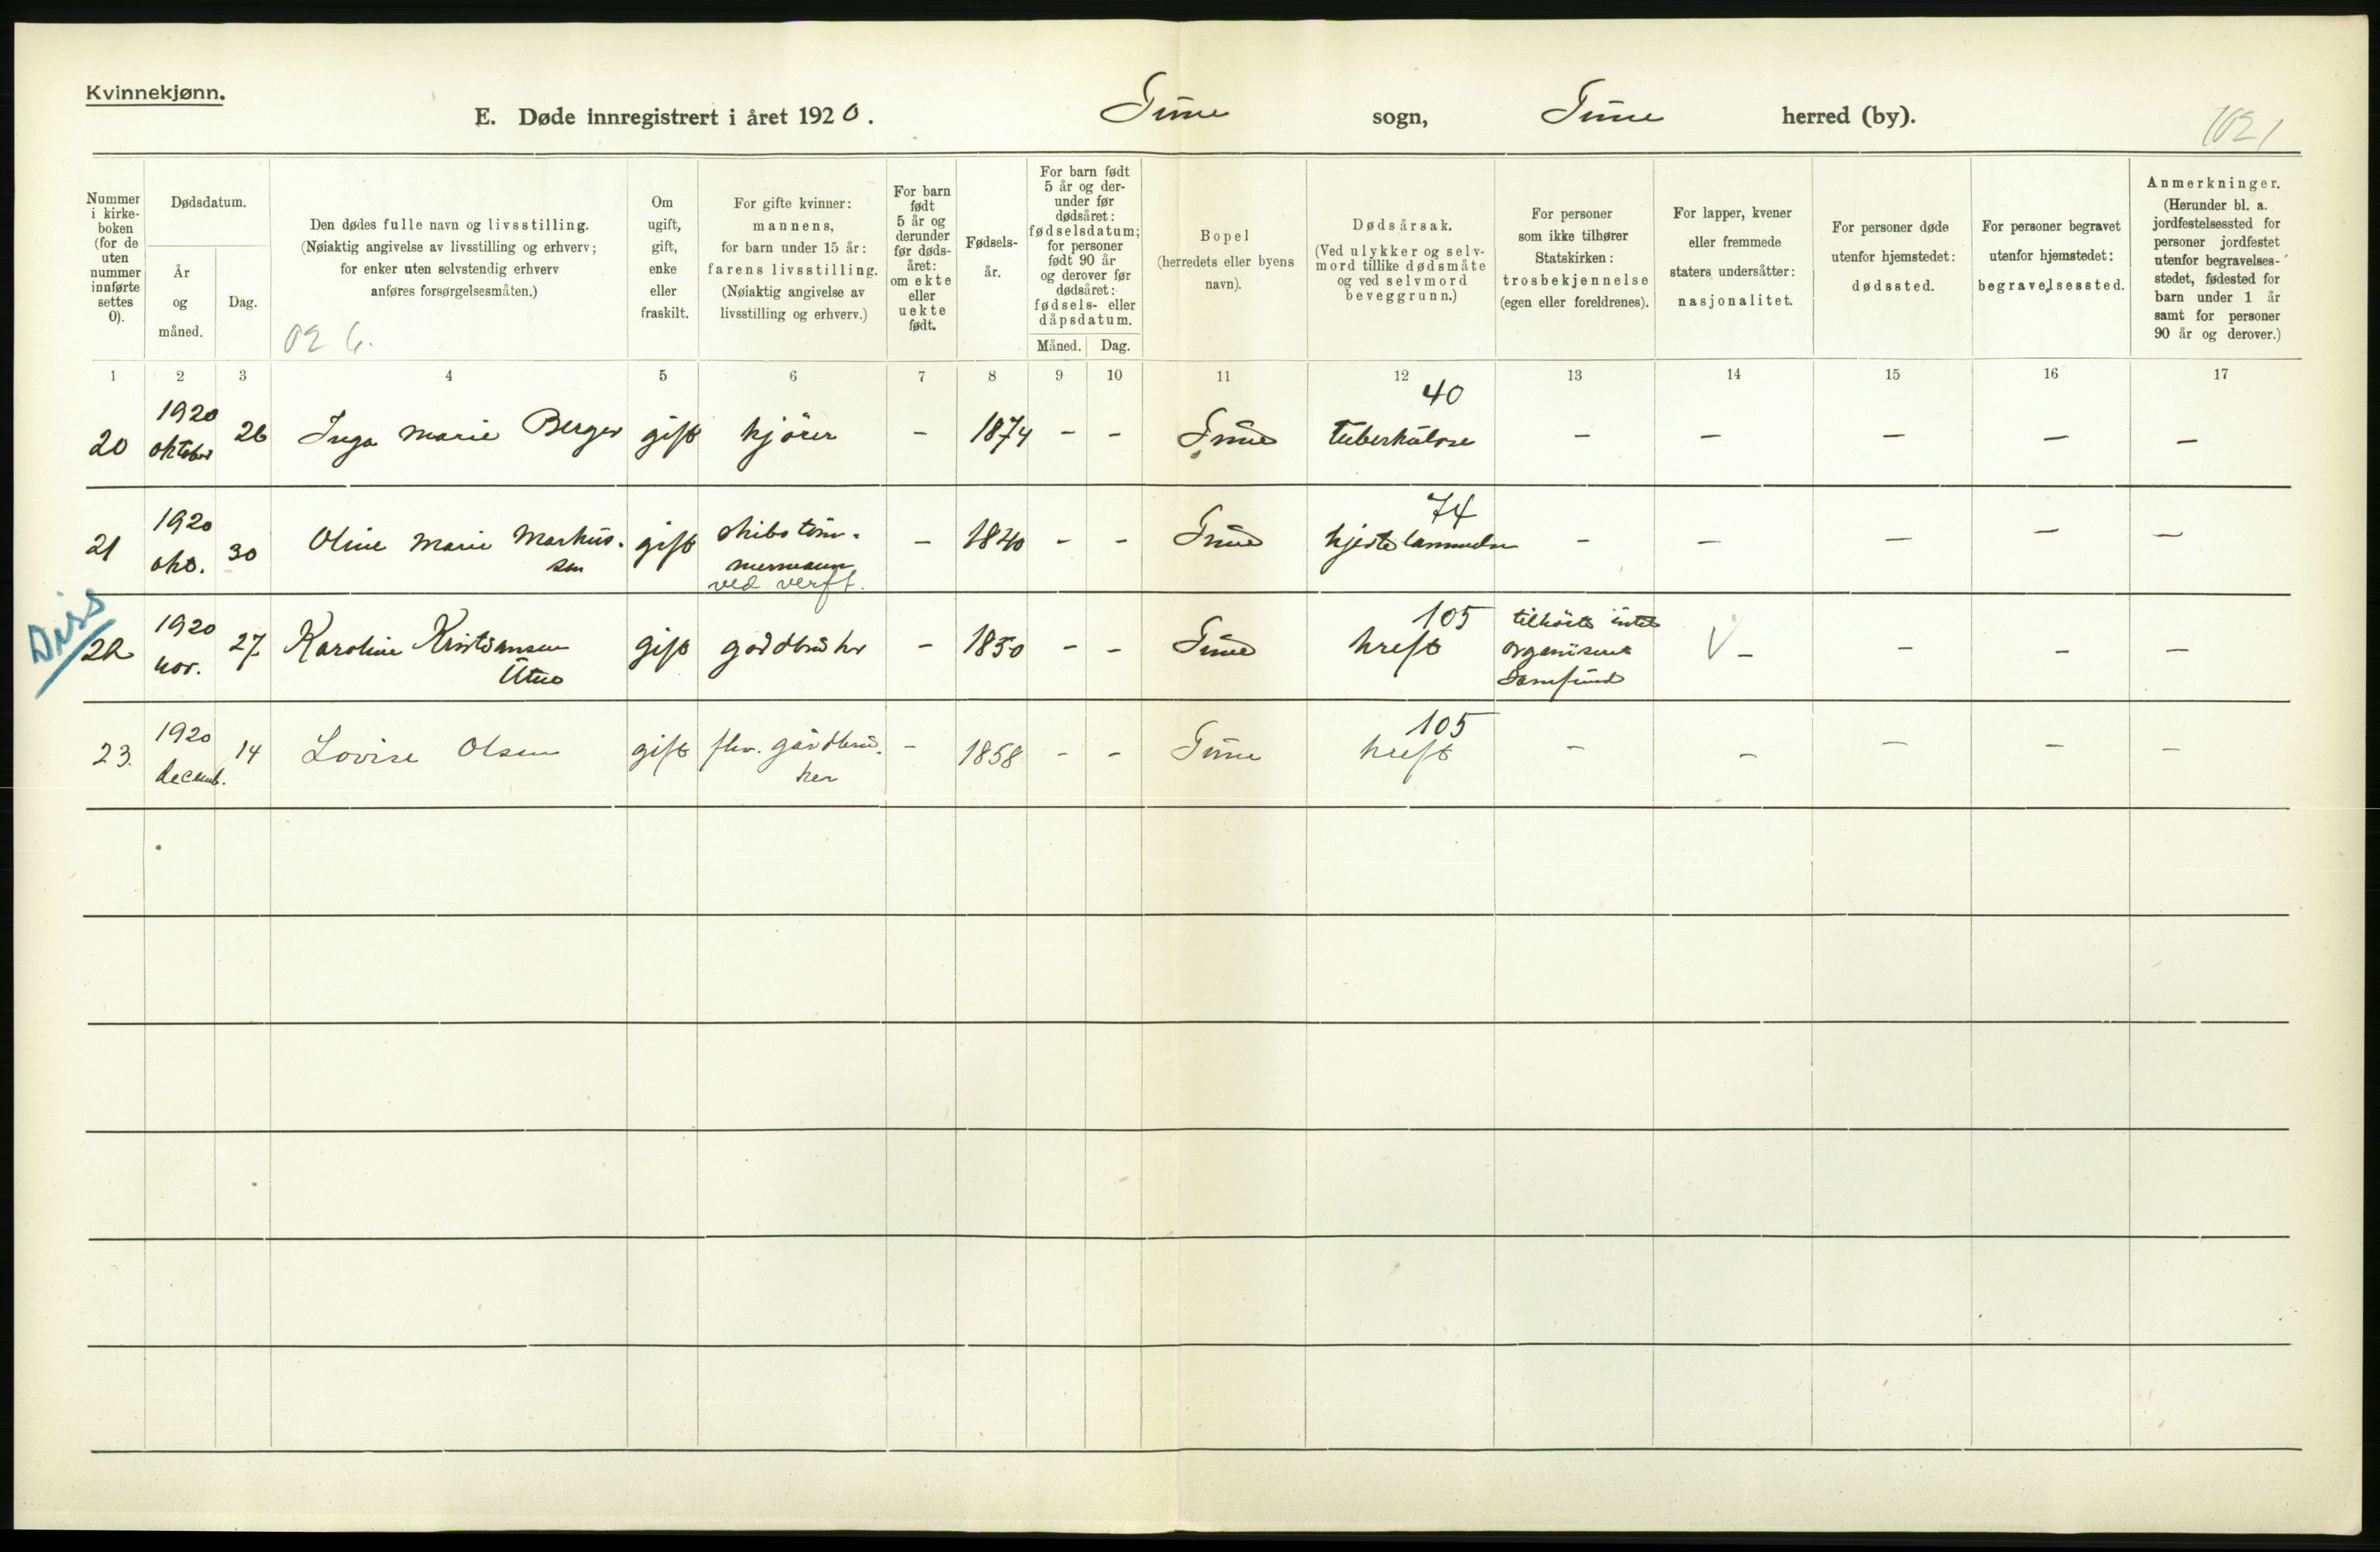 Kvinnekjønn.
E. Døde innregistrert i året 1920. Tune sogn, Tune herred (by).
1021
Nummer i kirke-boken (for de uten nummer innførte settes 0).
Dødsdatum.
År og måned.
Dag.
Den dødes fulle navn og livsstilling.
(Nøiaktig angivelse av livsstilling og erhverv;
for enker uten selvstendig erhverv
anføres forsørgelsesmåten.)
02 6.
Om ugift, gift, enke eller fraskilt.
For gifte kvinner: mannens, for barn under 15 år: farens livsstilling. (Nøiaktig angivelse av livsstilling og erhverv.)
For barn født 5 år og derunder før døds-året: om ekte eller uekte født.
Fødsels-år.
For barn født 5 år og der-under før dødsåret: fødselsdatum; for personer født 90 år og derover før dødsåret: fødsels- eller dåpsdatum.
Måned. Dag.
Bopel (herredets eller byens navn).
Dødsårsak. (Ved ulykker og selv-mord tillike dødsmåte og ved selvmord beveggrunn.)
For personer som ikke tilhører Statskirken: trosbekjennelse (egen eller foreldrenes).
For lapper, kvener eller fremmede staters undersåtter: nasjonalitet.
For personer døde utenfor hjemstedet: dødssted.
For personer begravet utenfor hjemstedet: begravelsessted.
Anmerkninger. (Herunder bl. a. jordfestelsessted for personer jordfestet utenfor begravelses-stedet, fødested for barn under 1 år samt for personer 90 år og derover.)
1 2 3 4 5 6 7 8 9 10 11 12 13 14 15 16 17
40
20 1920 oktober 26 Inga Marie Berger gift kjörer - 1874 - - Tune tuberkulose - - - - -
74
21 1920 okt. 30 Oline Marie Markus-sen gift skibstöm-mermann ved verft. - 1840 - - Tune hjertelammelse - - - - -
Diss
105
22 1920 nov. 27 Karoline Kristiansen Utne gift gårdbruker - 1850 - - Tune kreft tilhörte intet organisert samfund V - - - -
105
23. 1920 decemb. 14 Lovise Olsen gift fhv. gårdbru-ker - 1858 - - Tune kreft - - - - -